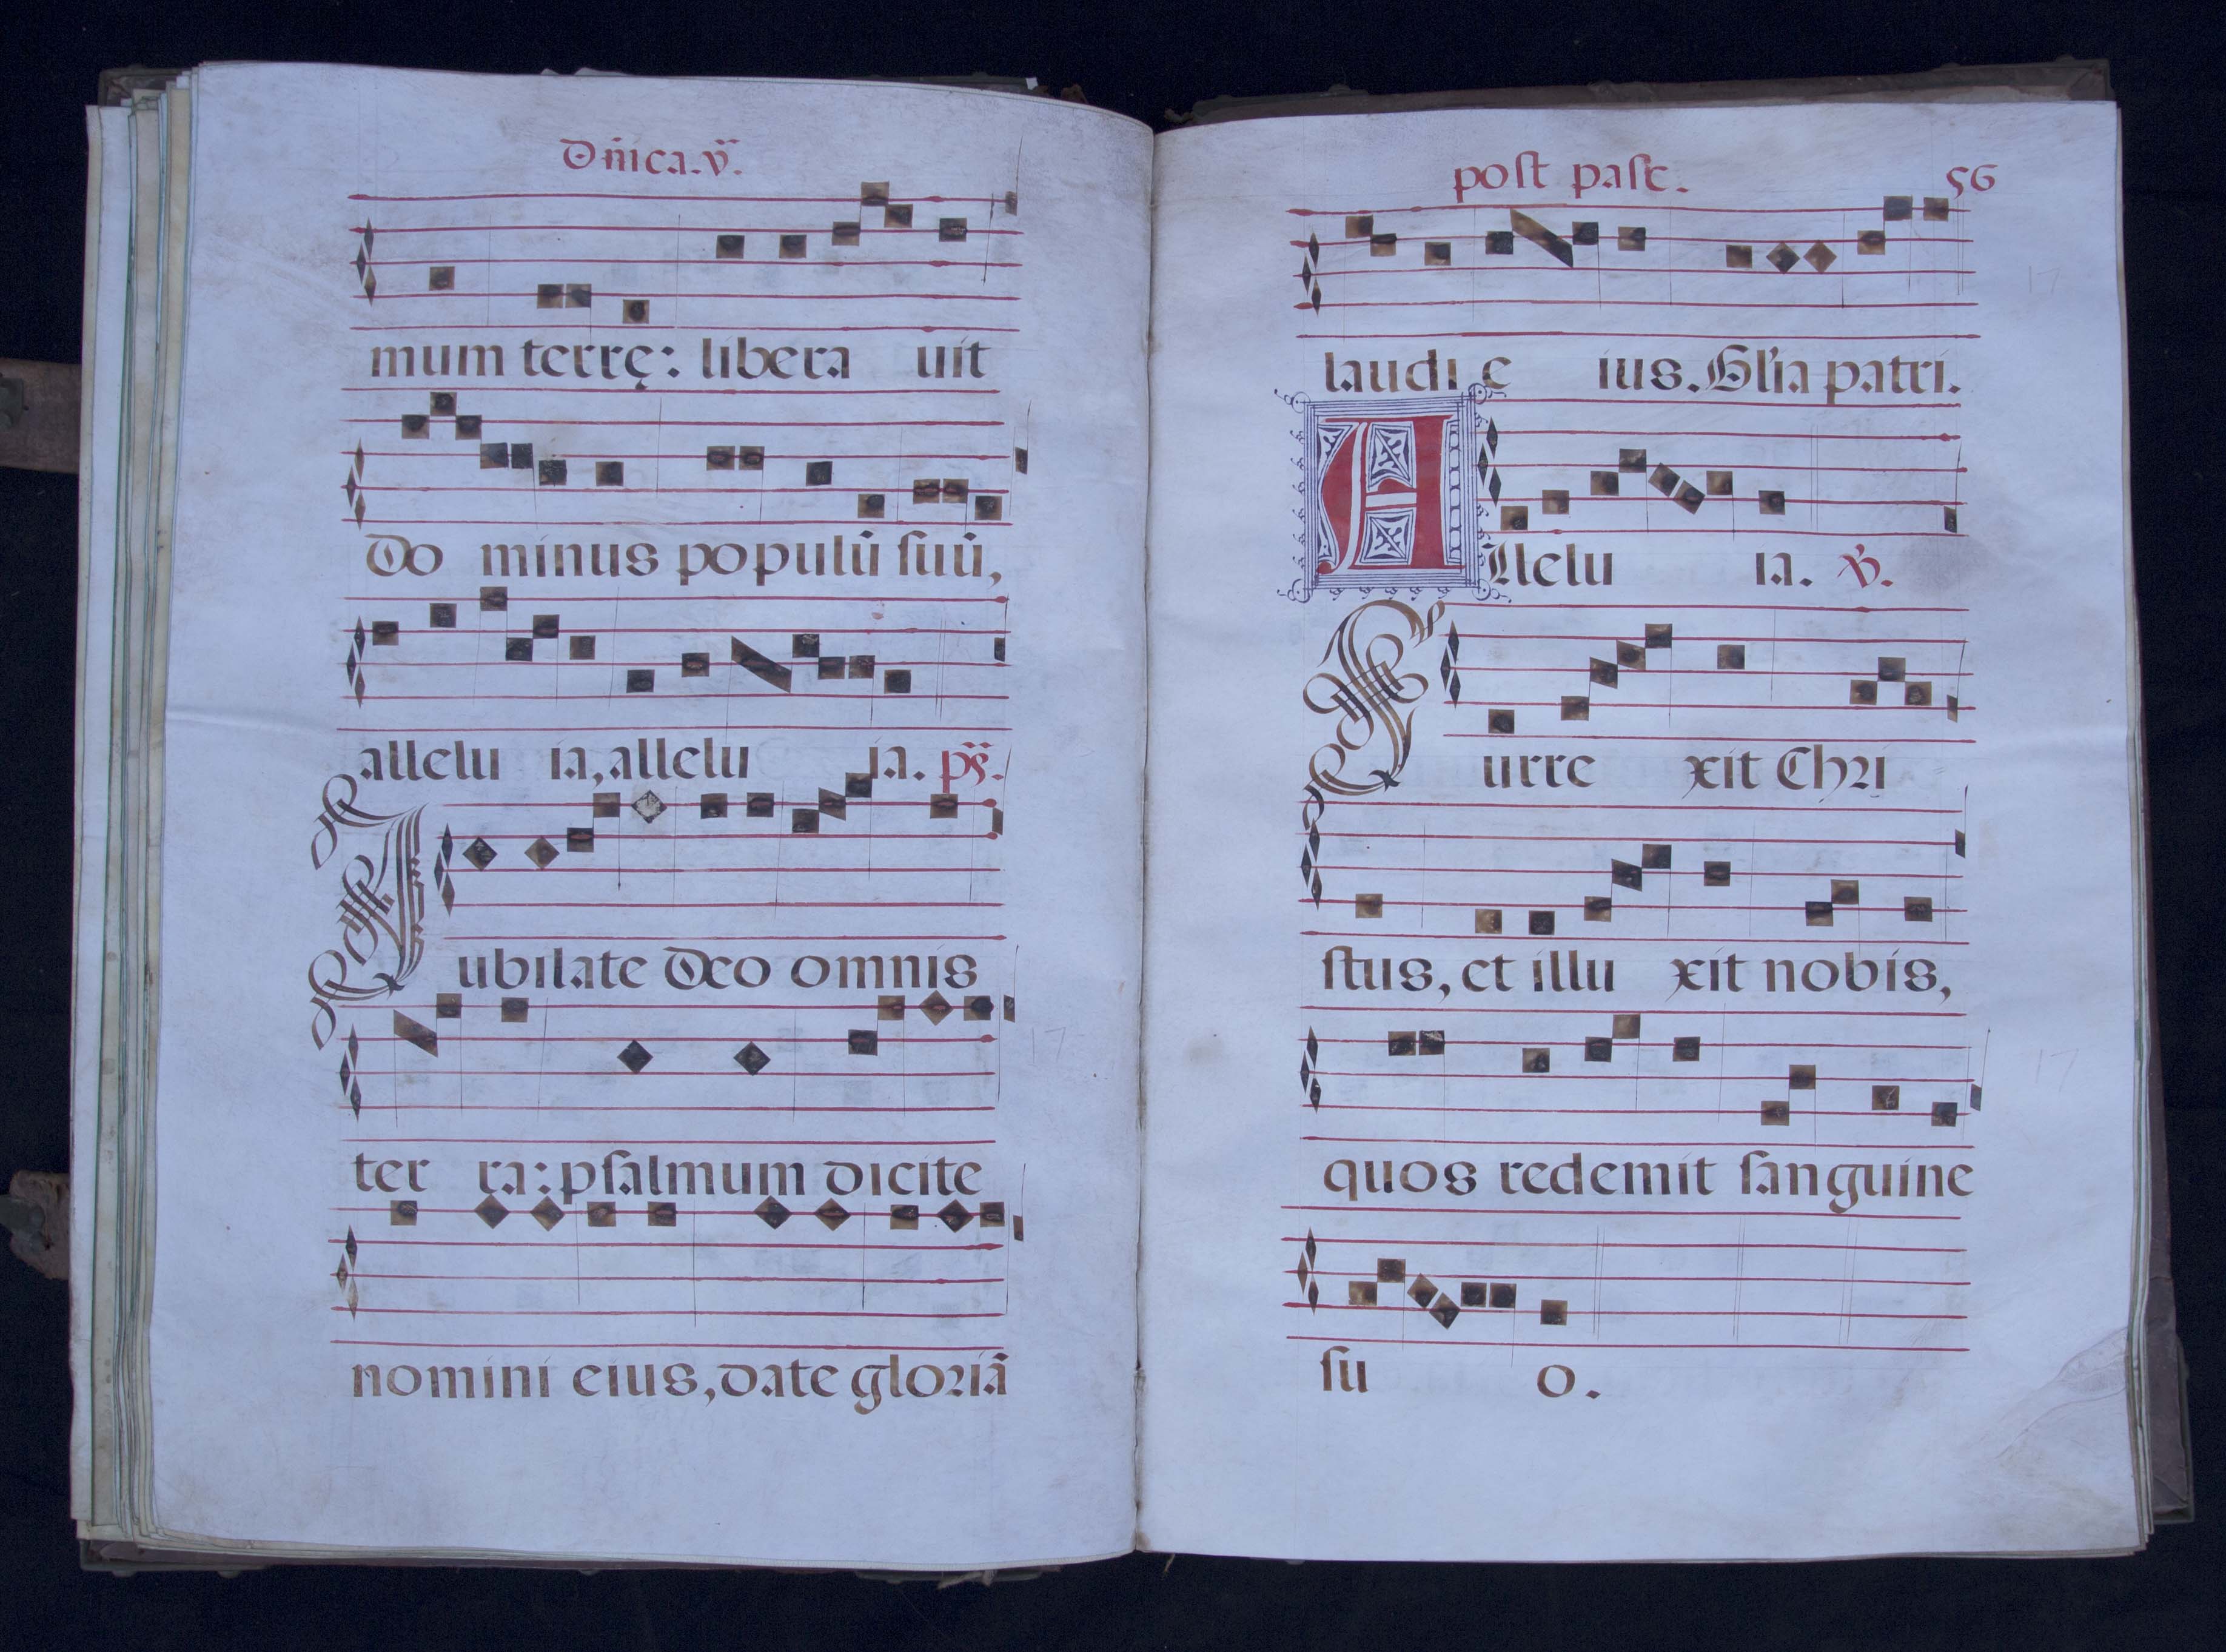 Dn̄ica.v.ª
mum terrę: libera uit
Do minus populū ſuū,
allelu ia, allelu ia. ps.
Jubilate Deo omnis
ter ra: pſalmum dicite
nomini eius, date gloriā
poſt paſc. 56
laudi e ius. Gl'ia patri.
Allelu ia. ℣.
Surre xit Chri
ſtus, et illu xit nobis,
quos redemit ſanguine
ſu o.
17
17
17